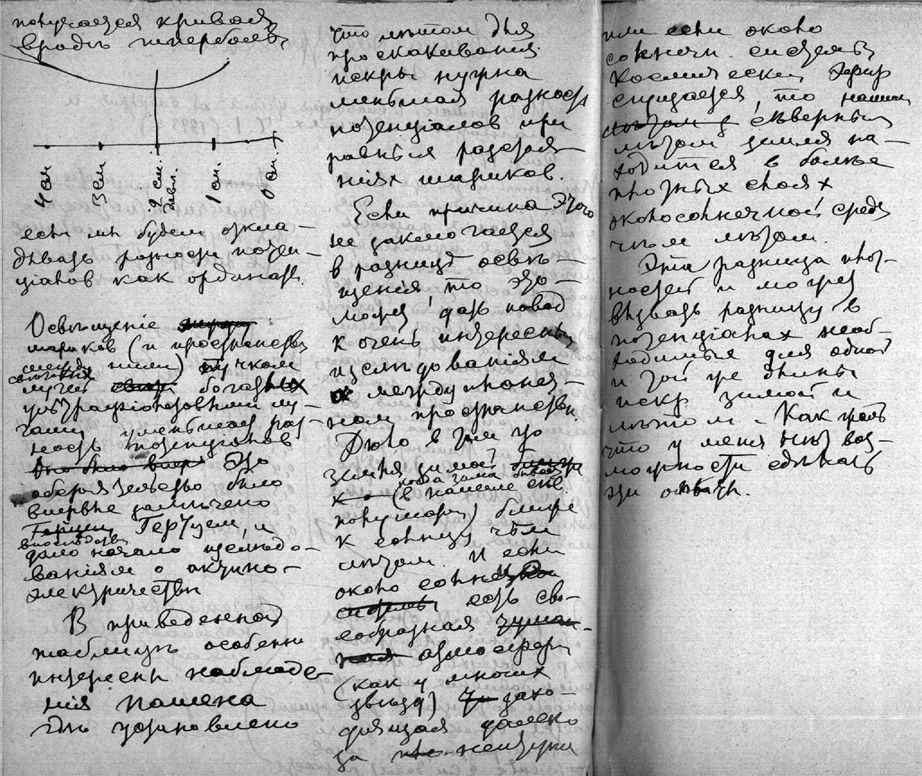 получается кривая
вродѣ гиперболы
4 см.
3 см.
2 см. давл.
1 см.
0 см.
если мы будем откла-
дывать разности потен-
ціалов как ординаты.
Освѣщеніе
шариков (и пространства
между ними) пучком
лучей богатых
ультрафіолетовыми лу-
чами уменьшает раз-
ность потенціалов
Это
обстоятельство было
впервые замѣчено
Герцем, и
впослѣдствіи
дало начало изслѣдо-
ваніям о актино-
электричествѣ
В приведенной
таблицѣ особенно
интересны наблюде-
нія Пашена
гдѣ установлено
что лѣтом для
проскакиванія
искры нужна
меньшая разность
потенціалов при
равных разстоя-
ніях шариков.
Если причина этого
не заключается
в разницѣ освѣ-
щенія, то это
может дать повод
к очень интересным
изслѣдованіям
о междупланет-
ном пространствѣ.
Дѣло в том что
земля зимой
когда зима бывает
(в нашем сѣв.
полушаріи) ближе
к солнцу чѣм
лѣтом. И если
около солнца
есть сво-
еобразная
атмосфера
(как у многих
звѣзд) захо-
дящая далеко
за
или если около
солнечн. системы
космическій эфир
сгущается, то нашим
сѣверным
лѣтом земля на-
ходится в болѣе
плотных слоях
околосолнечной среды
чѣм лѣтом.
Эта разница плот-
ностей и может
вызвать разницу в
потенціалах необ-
ходимых для одной
и той же длины
искр зимой и
лѣтом. Как жаль
что у меня нѣт воз-
можности сдѣлать
эти опыты.